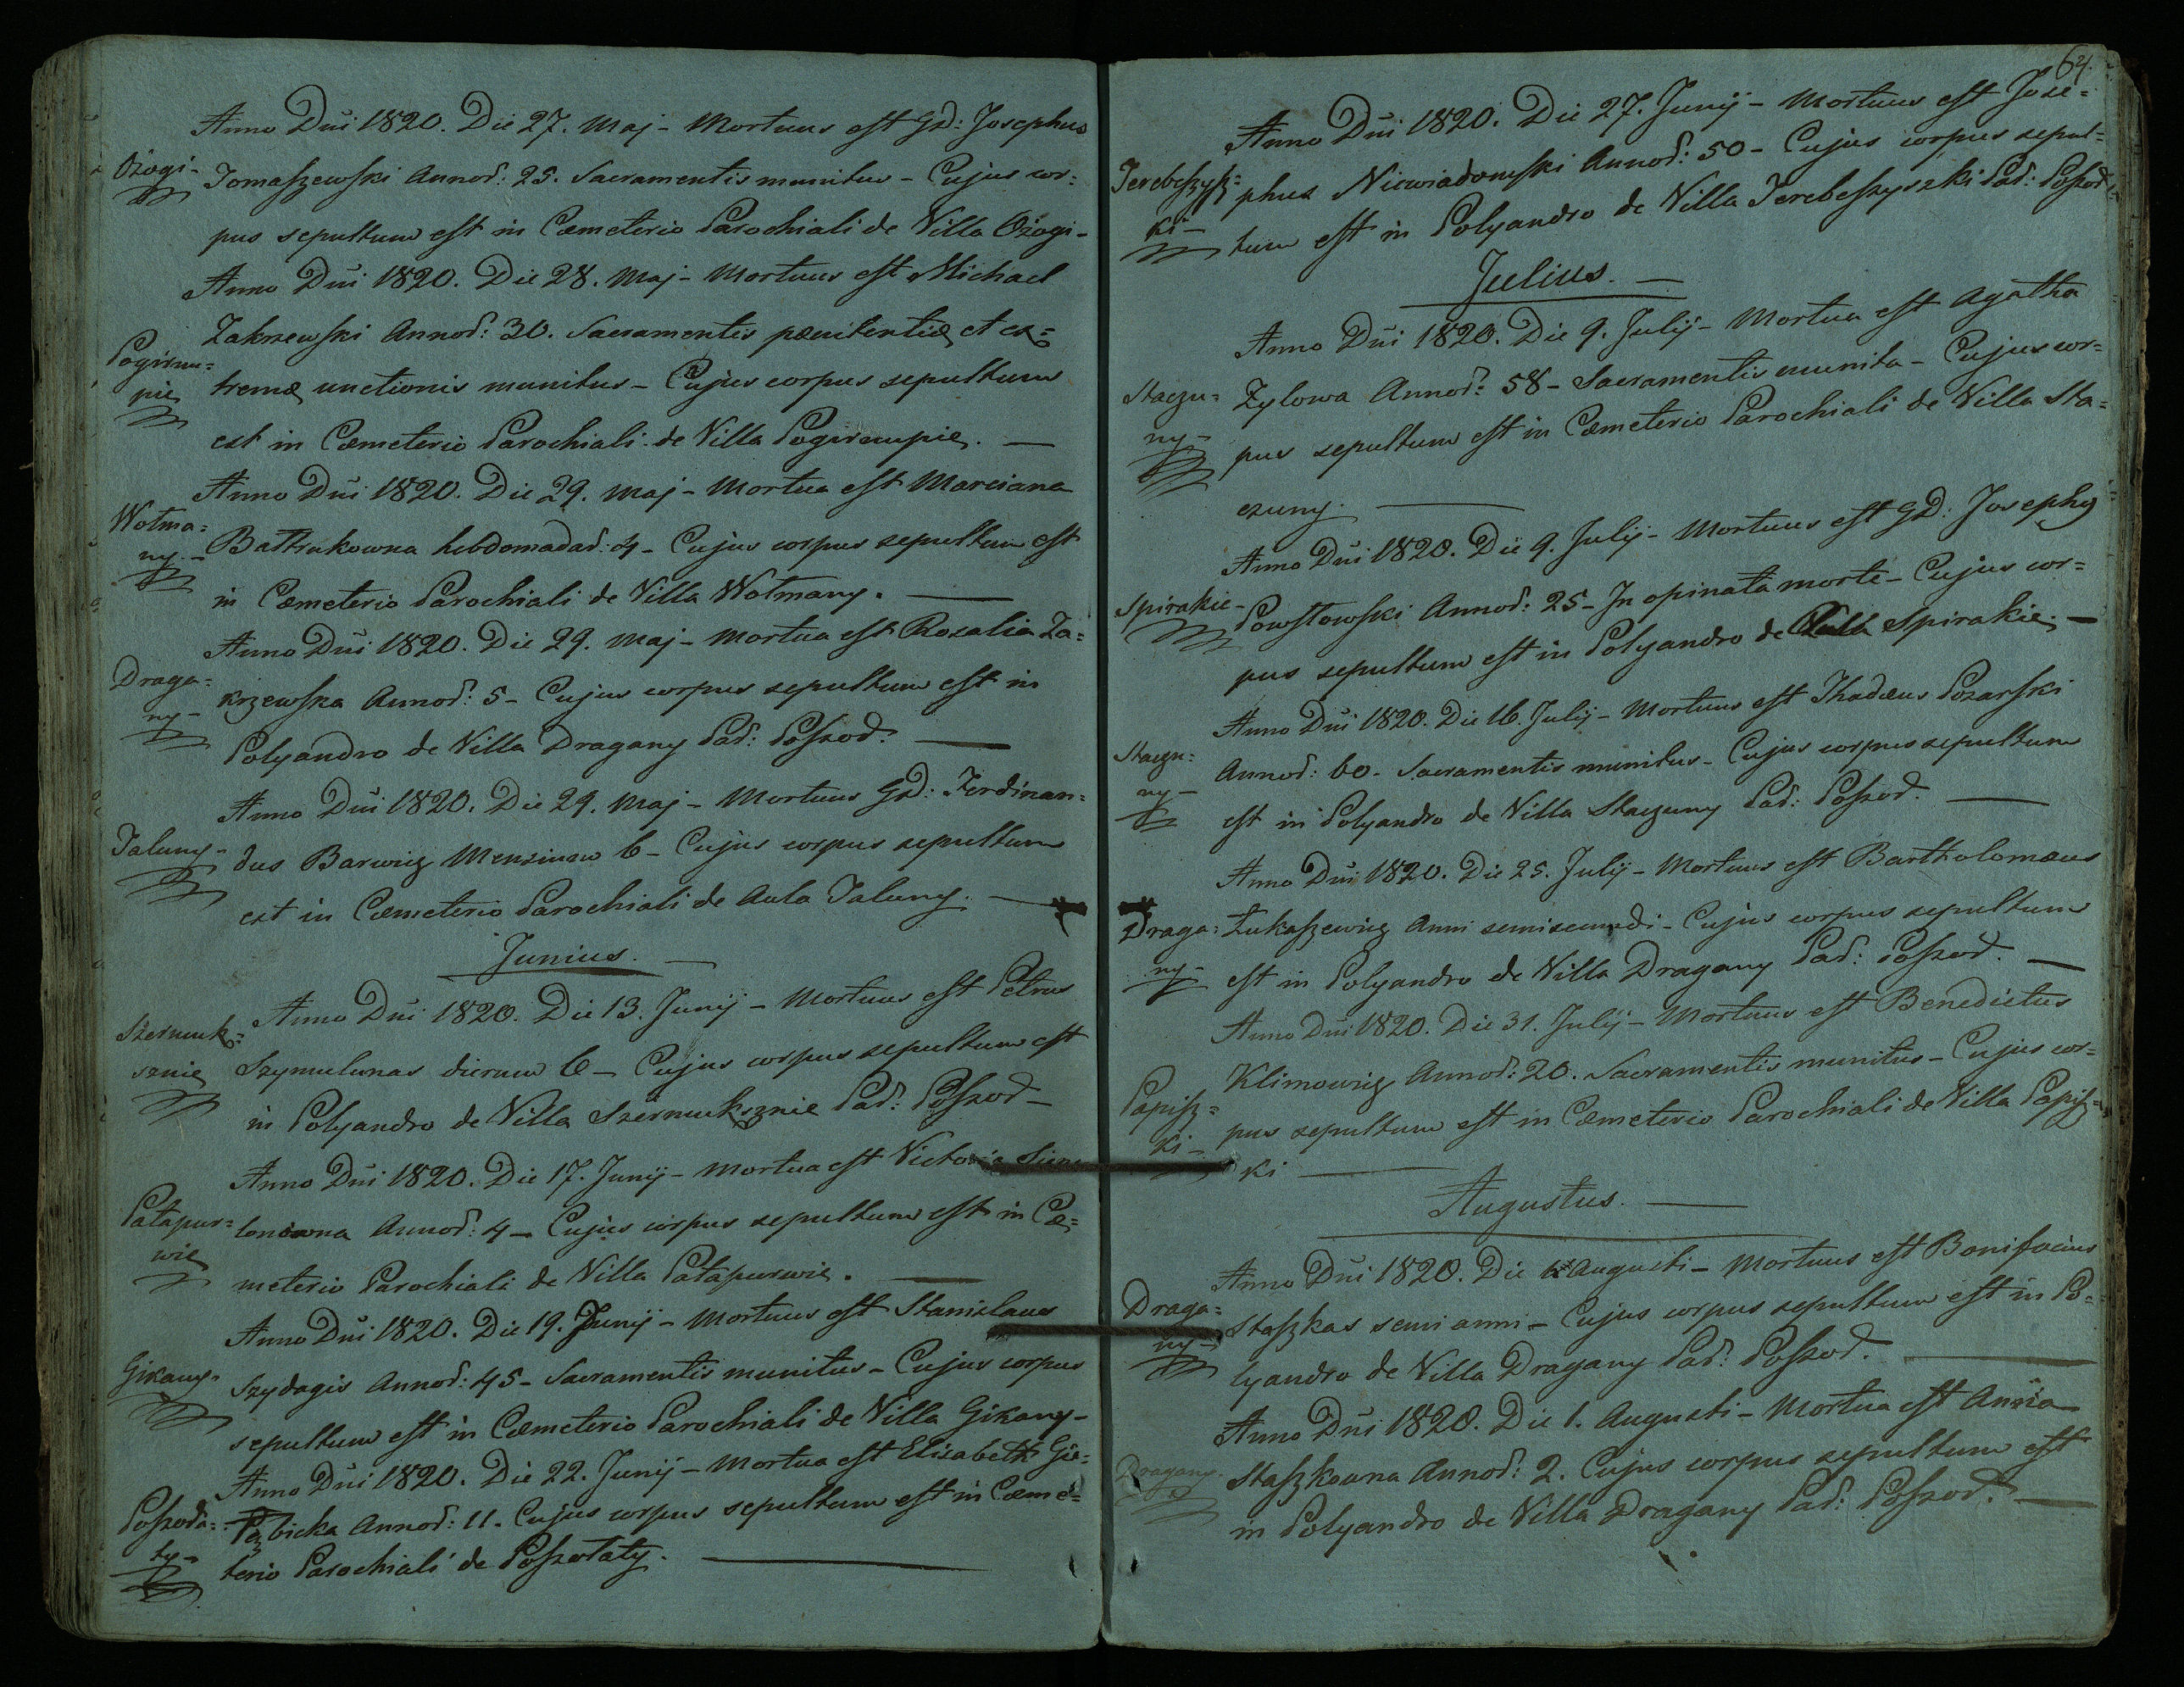 Anno Dñi 1820. Die 27. Maj - Mortuus est GD: Josephus
Ożogi- Tomaszewski Annor: 25. Sacramentis munitus - Cujus cor=
pus sepultum est in Cæmeterio Parochiali de Villa Ożogi-
Anno Dñi 1820. Die 28. Maj - Mortuus est Michael
Zakrzewski Annor: 30. Sacramentis pænitentiæ et ex=
Pogirum=
pie tremæ unctionis munitus - Cujus corpus sepultum
est in Cæmeterio Parochiali de Villa Pogirumpie. —
Anno Dñi 1820. Die 29. Maj - Mortua est Marciana
Wotma=
ny - Battrukowna hebdomadar: 4 - Cujus corpus sepultum est
in Cæmeterio Parochiali de Villa Wotmany. —
Anno Dñi 1820. Die 29. Maj - Mortua est Rozalia Za=
Draga=
ny - krzewska Annor: 5 - Cujus corpus sepultum est in
Polyandro de Villa Dragany Par: Poszod. —
Anno Dñi 1820. Die 29. Maj - Mortuus GD: Ferdinan=
Jaluny - dus Barwicz Mensium 6 - Cujus corpus sepultum
est in Cæmeterio Parochiali de Aula Jaluny. —
Junius. —
Anno Dñi 1820. Die 13. Junij - Mortuus est Petrus
Szermuk=
sznie Szymulunas dierum 6 - Cujus corpus sepultum est
in Polyandro de Villa Szermuksznie Par: Poszod -
Anno Dñi 1820. Die 17. Junij - Mortua est Victoria
Patapur=
wie lonowna Annor: 4 - Cujus corpus sepultum est in Cæ=
meterio Parochiali de Villa Patapurwie. —
Anno Dñi 1820. Die 19. Junij - Mortuus est Stanislaus
Gikany - Szydagis Annor: 45 - Sacramentis munitus - Cujus corpus
sepultum est in Cæmeterio Parochiali de Villa Gikany -
Anno Dñi 1820. Die 22. Junij - Mortua est Elisabeth Gie=
Poszoła=
ty - bicka Annor: 11. Cujus corpus sepultum est in Cæme=
terio Parochiali de Poszołaty. —
64.
Anno Dñi 1820. Die 27. Junij - Mortuus est Jose=
Jerebeszysz=
ki - phus Niewiadomski Annor: 50 - Cujus corpus sepul=
tum est in Polyandro de Villa Jerebeszyszki Par: Poszod
Julius. —
Anno Dñi 1820. Die 9. Julij - Mortua est Agatha
Staczu=
ny - Zylowa Annor: 58 - Sacramentis munita - Cujus cor=
pus sepultum est in Cæmeterio Parochiali de Villa Sta=
czuny. —
Anno Dñi 1820. Die 9. Julij - Mortuus est GD: Josephg
Spirakie - Powstowski Annor: 25 - In opinata morte - Cujus cor=
pus sepultum est in Polyandro de Villa Spirakie. —
Anno Dñi 1820. Die 16. Julij - Mortuus est Thadæus Pozarski
Staczu=
ny - Annor: 60 - Sacramentis munitus - Cujus corpus sepultum
est in Polyandro de Villa Staczuny Par: Poszod. —
Anno Dñi 1820. Die 25. Julij - Mortuus est Bartholomæus
Draga=
ny - Łukaszewicz Anni semisecundi - Cujus corpus sepultum
est in Polyandro de Villa Dragany Par: Poszod. —
Anno Dñi 1820. Die 31. Julij - Mortuus est Benedictus
Klimowicz Annor: 20. Sacramentis munitus - Cujus cor=
Papisz=
ki - pus sepultum est in Cæmeterio Parochiali de Villa Papisz=
ki —
Augustus. —
Anno Dñi 1820. Die Augusti - Mortuus est Bonifacius
Draga=
ny - Staszkas semi anni - Cujus corpus sepultum est in Po=
lyandro de Villa Dragany Par: Poszod. —
Anno Dñi 1820. Die 1. Augusti - Mortua est Anna
Dragany - Staszkowna Annor: 2. Cujus corpus sepultum est
in Polyandro de Villa Dragany Par: Poszod. —